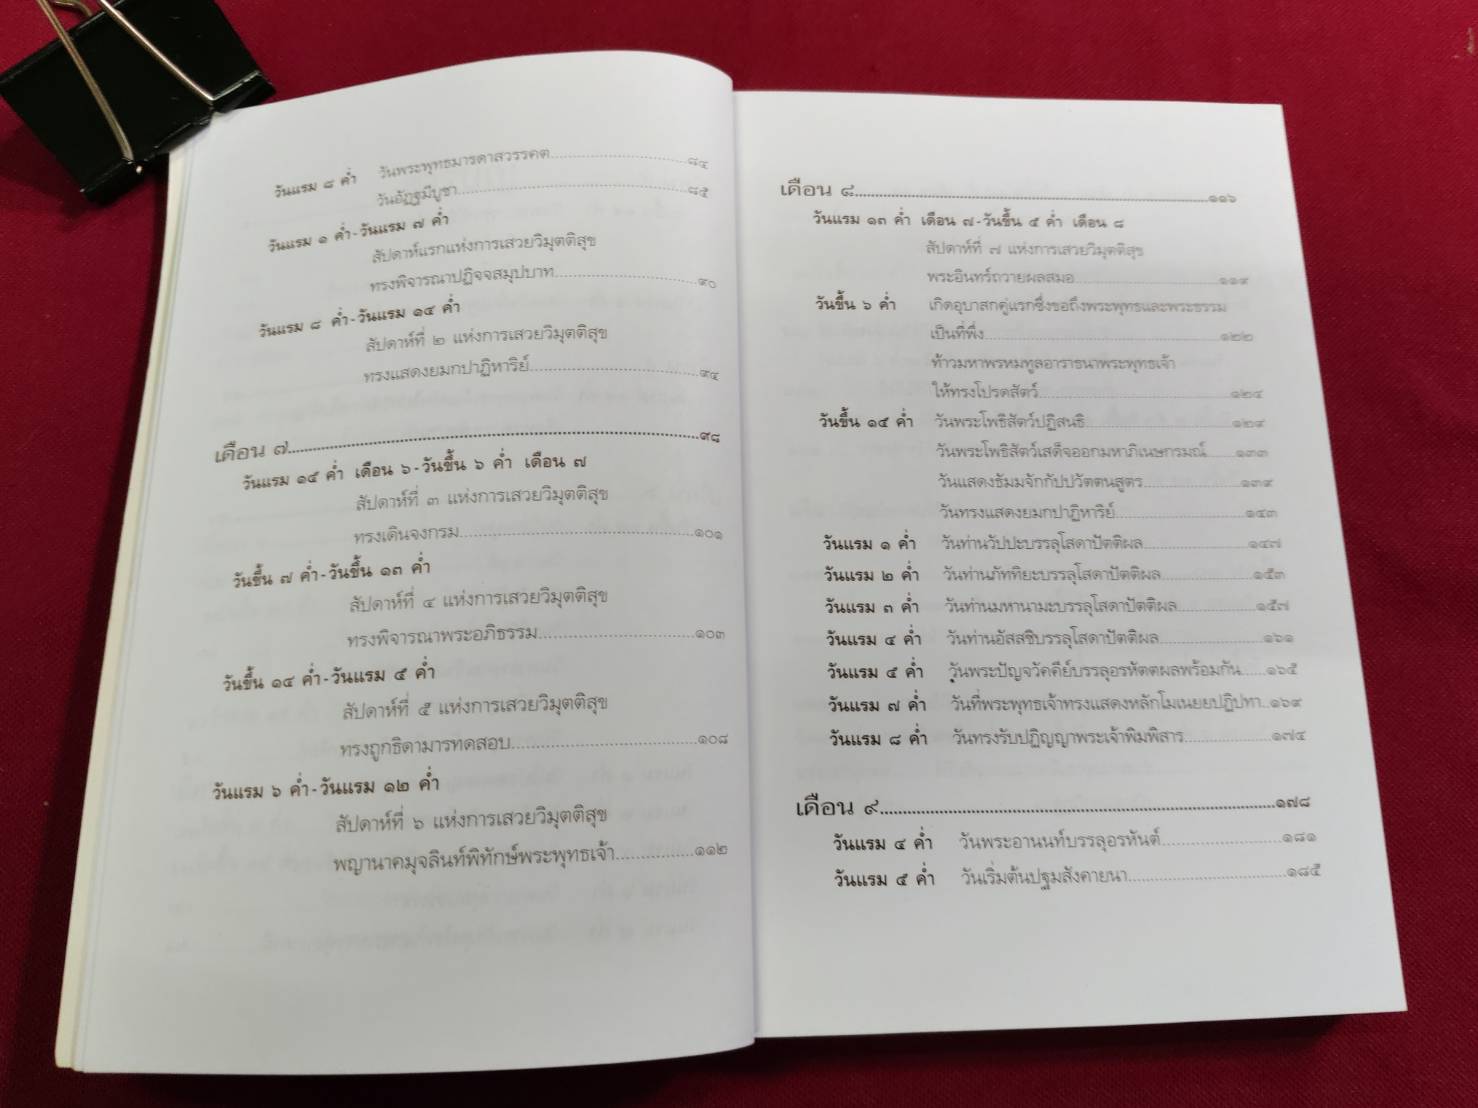 วันแรม ๘ ค่ำ วันพระพุทธมารดาสวรรคต........................๘๔
วันอัฏฐมีบูชา........................๘๕
วันแรม ๑ ค่ำ-วันแรม ๗ ค่ำ
สัปดาห์แรกแห่งการเสวยวิมุตติสุข
ทรงพิจารณาปฏิจจสมุปบาท........................๙๐
วันแรม ๘ ค่ำ-วันแรม ๑๔ ค่ำ
สัปดาห์ที่ ๒ แห่งการเสวยวิมุตติสุข
ทรงแสดงยมกปาฏิหาริย์........................๙๔
เดือน ๗........................๙๘
วันแรม ๑๕ ค่ำ เดือน ๖-วันขึ้น ๖ ค่ำ เดือน ๗
สัปดาห์ที่ ๓ แห่งการเสวยวิมุตติสุข
ทรงเดินจงกรม........................๑๐๑
วันขึ้น ๗ ค่ำ-วันขึ้น ๑๓ ค่ำ
สัปดาห์ที่ ๔ แห่งการเสวยวิมุตติสุข
ทรงพิจารณาพระอภิธรรม........................๑๐๓
วันขึ้น ๑๔ ค่ำ-วันแรม ๕ ค่ำ
สัปดาห์ที่ ๕ แห่งการเสวยวิมุตติสุข
ทรงถูกธิดามารทดสอบ........................๑๐๘
วันแรม ๖ ค่ำ-วันแรม ๑๒ ค่ำ
สัปดาห์ที่ ๖ แห่งการเสวยวิมุตติสุข
พญานาคมุจลินท์พิทักษ์พระพุทธเจ้า...............๑๑๒
เดือน ๘........................๑๑๖
วันแรม ๑๓ ค่ำ เดือน ๗-วันขึ้น ๕ ค่ำ เดือน ๘
สัปดาห์ที่ ๗ แห่งการเสวยวิมุตติสุข
พระอินทร์ถวายผลสมอ........................๑๑๙
วันขึ้น ๖ ค่ำ เกิดอุบาสกคู่แรกซึ่งขอถึงพระพุทธและพระธรรม
เป็นที่พึ่ง........................๑๒๒
ท้าวมหาพรหมทูลอาราธนาพระพุทธเจ้า
ให้ทรงโปรดสัตว์........................๑๒๔
วันขึ้น ๑๕ ค่ำ วันพระโพธิสัตว์ปฏิสนธิ........................๑๒๙
วันพระโพธิสัตว์เสด็จออกมหาภิเนษกรมณ์......๑๓๓
วันแสดงธัมมจักกัปปวัตตนสูตร...................๑๓๙
วันทรงแสดงยมกปาฏิหาริย์........................๑๔๓
วันแรม ๑ ค่ำ วันท่านวัปปะบรรลุโสดาปัตติผล...................๑๔๗
วันแรม ๒ ค่ำ วันท่านภัททิยะบรรลุโสดาปัตติผล................๑๕๓
วันแรม ๓ ค่ำ วันท่านมหานามะบรรลุโสดาปัตติผล..............๑๕๗
วันแรม ๔ ค่ำ วันท่านอัสสชิบรรลุโสดาปัตติผล...................๑๖๑
วันแรม ๕ ค่ำ วันพระปัญจวัคคีย์บรรลุอรหัตตผลพร้อมกัน......๑๖๕
วันแรม ๗ ค่ำ วันที่พระพุทธเจ้าทรงแสดงหลักโมเนยยปฏิปทา..๑๖๙
วันแรม ๘ ค่ำ วันทรงรับปฏิญญาพระเจ้าพิมพิสาร...............๑๗๔
เดือน ๙........................๑๗๘
วันแรม ๔ ค่ำ วันพระอานนท์บรรลุอรหันต์...................๑๘๑
วันแรม ๕ ค่ำ วันเริ่มต้นปฐมสังคายนา........................๑๘๕